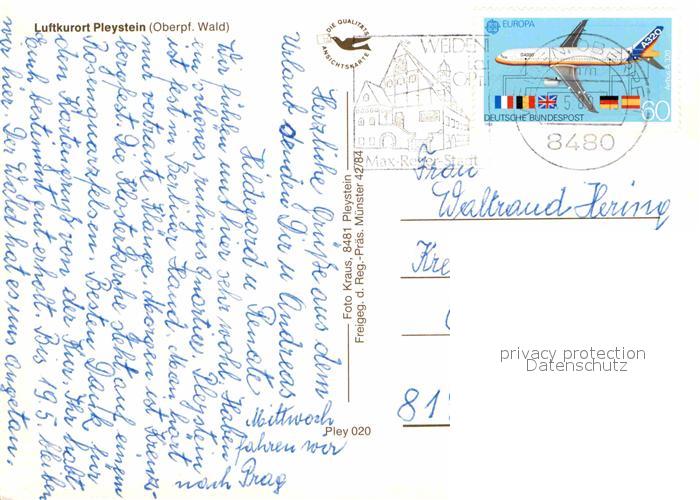 Luftkurort Pleystein (Oberpf. Wald)
DIE QUALITÄTS
ANSICHTSKARTE
Herzliche Grüße aus dem
Urlaub senden Dir u. Andreas
Hildegard u. Renate
Wir fühlen uns hier sehr wohl. Haben
ruhiges Quartier. Pleystein
ist fest in Berliner Hand. Man hört
nur vertraute Klänge. Morgen ist Kreuz-
bergfest. Die Klosterkirche steht auf einem
Rosenquarzfelsen. Besten Dank für
den Kartengruß von der Kur. Ihr habt
Euch bestimmt gut erholt. Bis 19.5. bleiben
wir hier. Der Wald hat es uns angetan.
Mittwoch
fahren wir
nach Prag
Foto Kraus, 8481 Pleystein
Freigeg. d. Reg.-Präs. Münster 42/84
Pley 020
WEIDEN
OPf
Max-Reger-Stadt
8480
EUROPA
A320
Airbus A320
DEUTSCHE BUNDESPOST
60
Frau
Waltraud Hering
Kre
81
privacy protection
Datenschutz